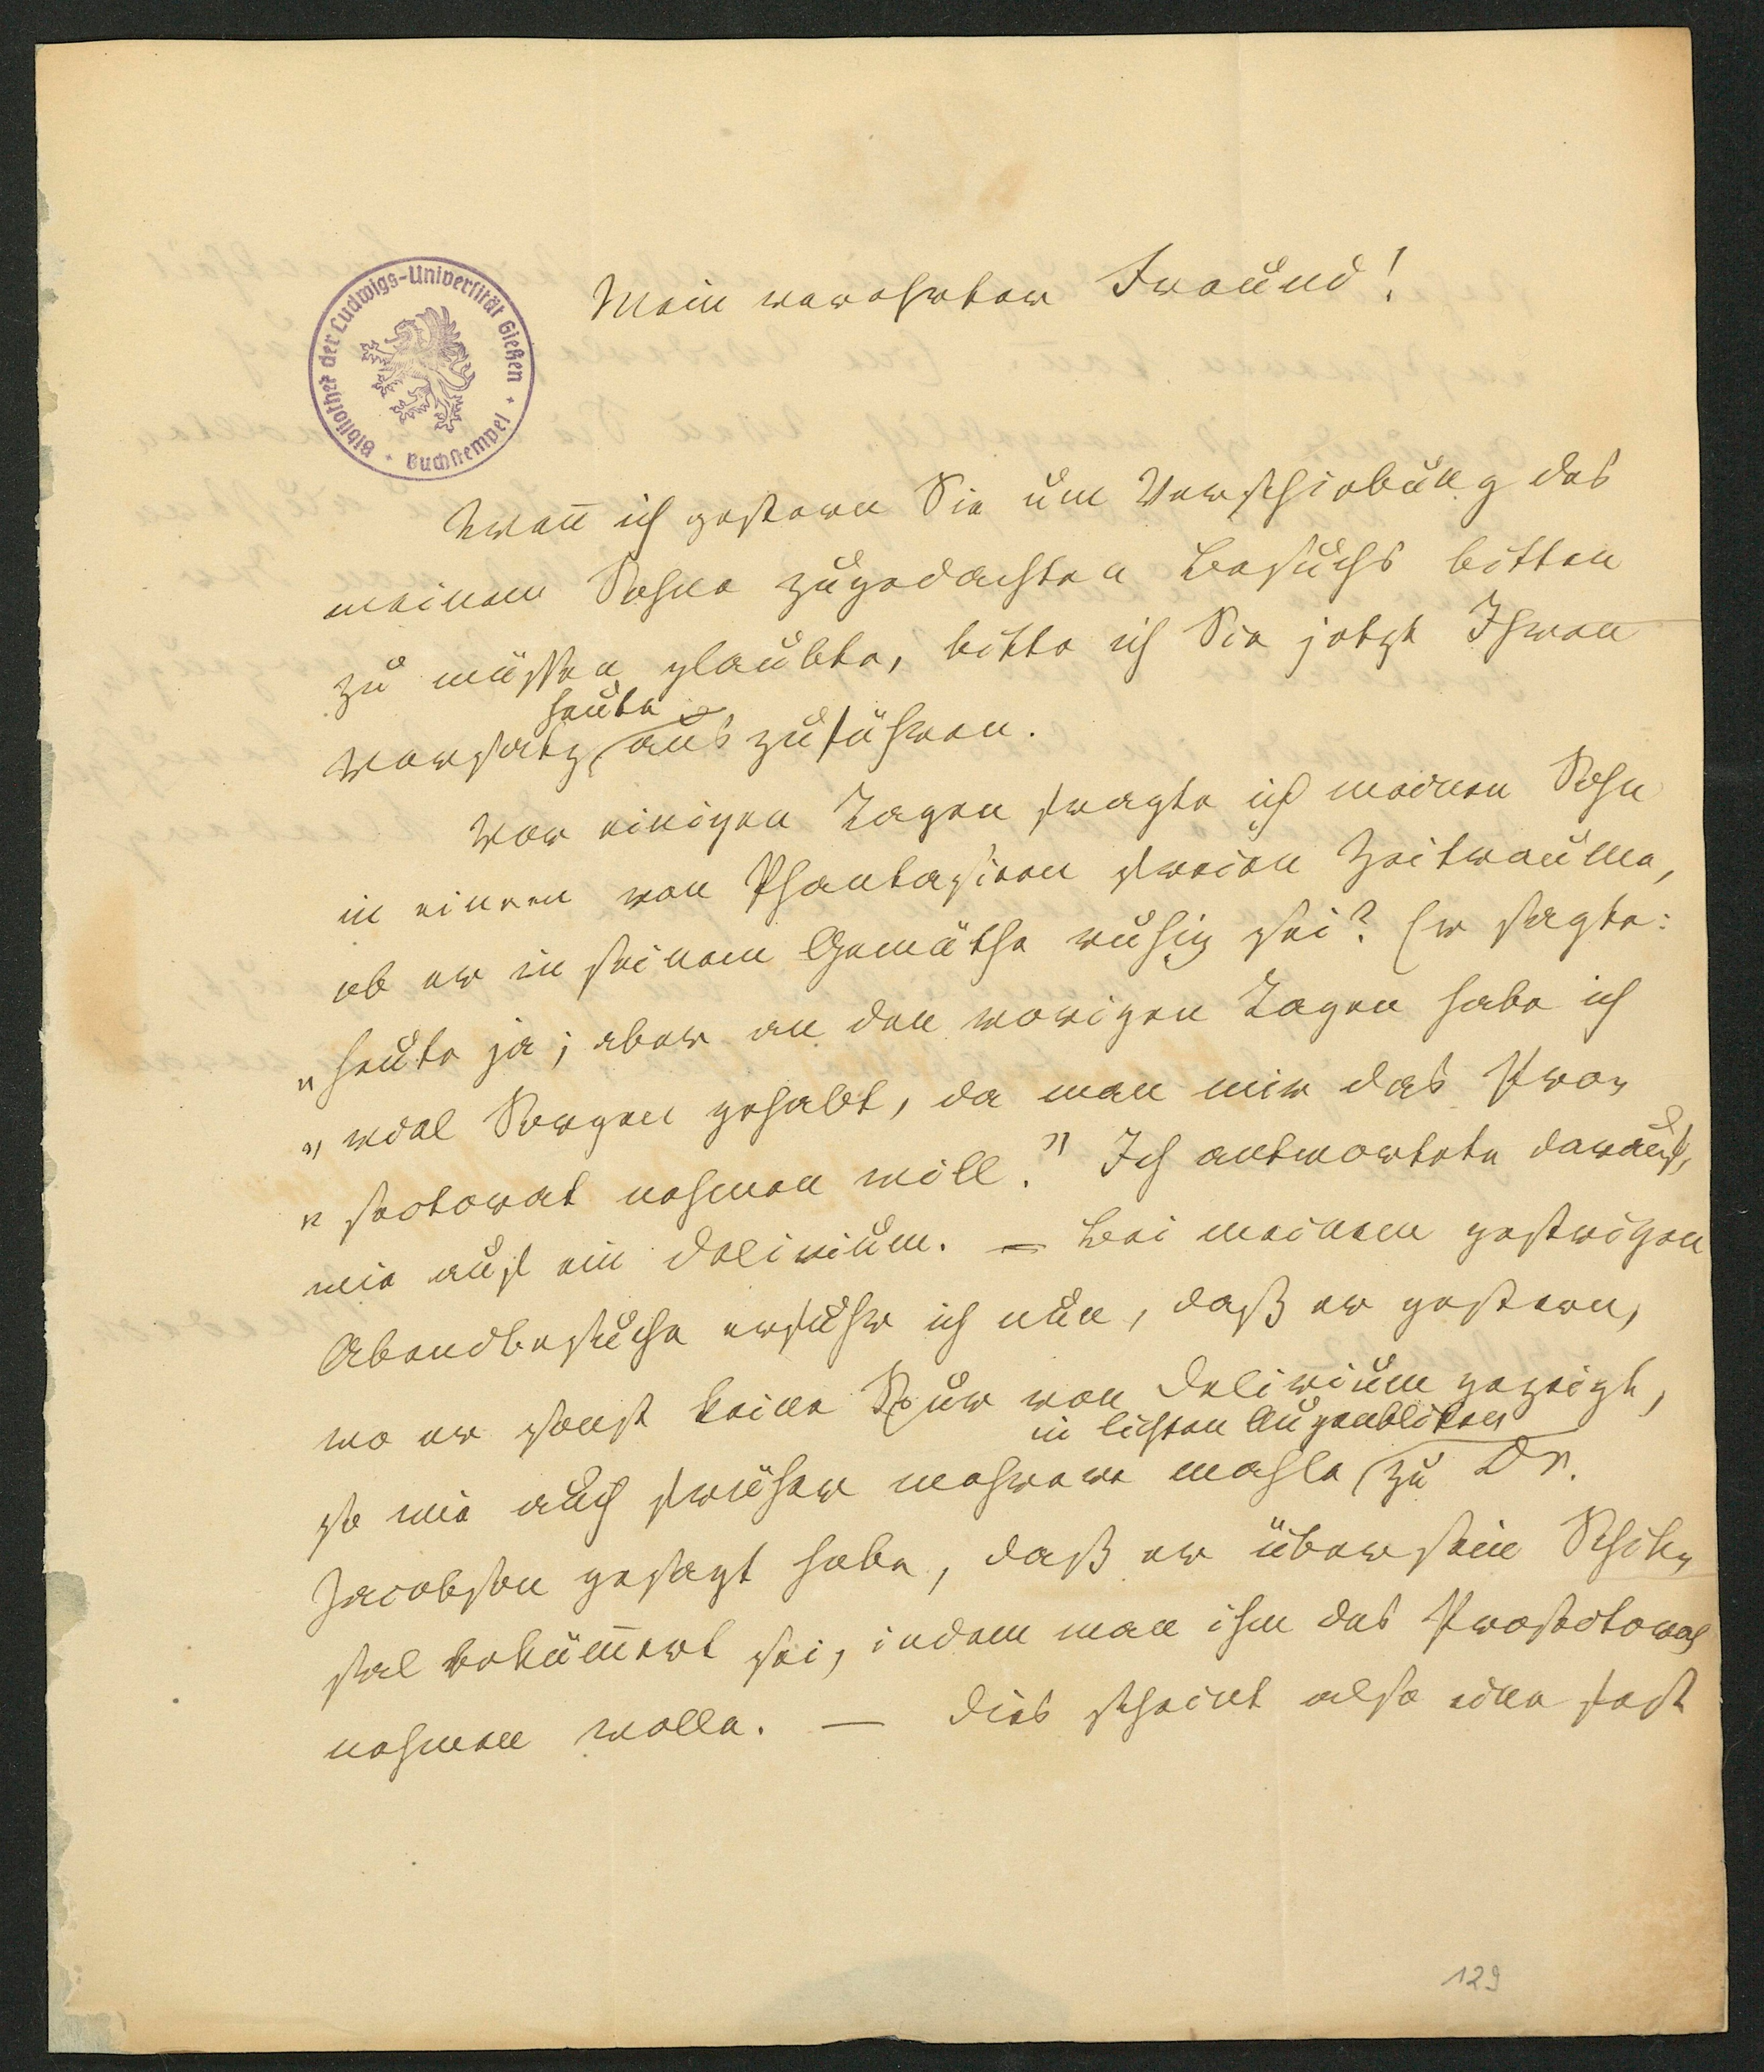 Mein verehrter Freund!
Bibliothek der Ludwigs-Universität Gießen
Buchstempel
Wen̄ ich gestern Sie um Verschiebung des
meinem Sohne zugedachten Besuchs bitten
zu müssen glaubte, bitte ich Sie jetzt Ihren
heute
Vorsatz auszuführen.
Vor einigen Tagen fragte ich meinen Sohn
in einem von Phantasieen freien Zeitraume,
ob er in seinem Gemüthe ruhig sei? Er sagte:
„heute ja; aber an den vorigen Tagen habe ich
„viel Sorgen gehabt, da man mir das Pro⸗
„sectorat nehmen will.” Ich antwortete darauf,
wie auf ein Delirium. — Bei meinem gestrigen
Abendbesuche erfuhr ich nun, daß er gestern,
wo er sonst keine Spur von Delirium gezeigt,
in lichten Augenbliken
so wie auch früher mehrere mahle zu Dr.
Jacobson gesagt habe, daß er über sein Schik⸗
sal bekümm̄ert sei, indem man ihm das Prosectorat
nehmen wolle. — Dies scheint also eine fest
129